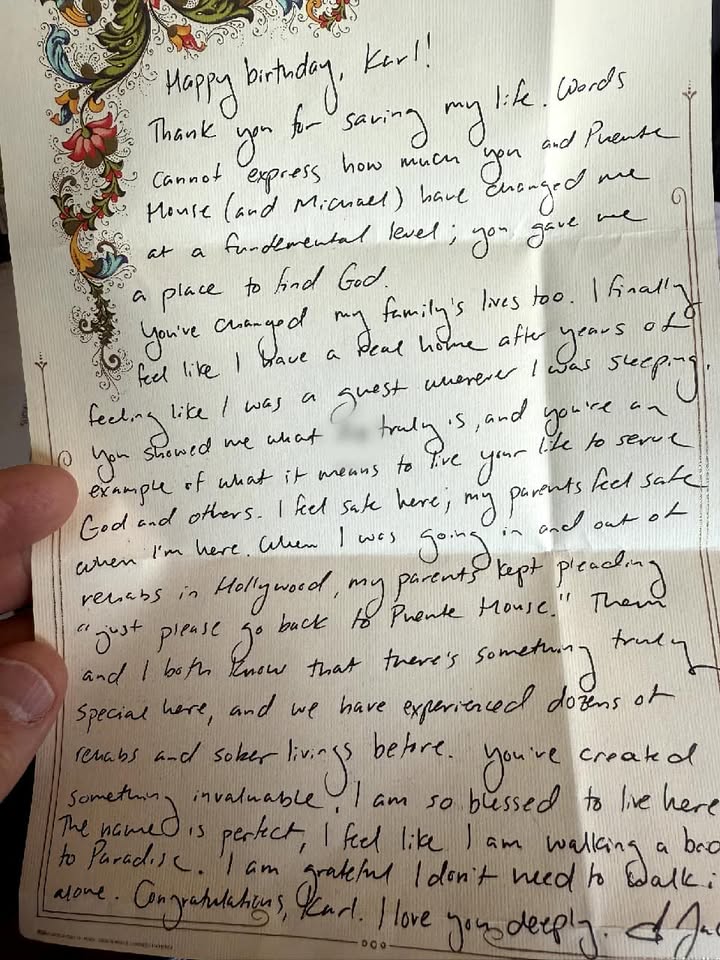 Happy birthday, Karl!
Thank you for saving my life. Words
cannot express how much you and Puente
House (and Michael) have changed me
at a fundemental level; you gave me
a place to find God.
You've changed my family's lives too. I finally
feel like I have a real home after years of
feeling like I was a guest wherever I was sleeping.
You showed me what truly is, and you're an
example of what it means to live your life to serve
God and others. I feel safe here; my parents feel safe
when I'm here. When I was going in and out of
rehabs in Hollywood, my parents kept pleading
"just please go back to Puente House." Them
and I both know that there's something truly
special here, and we have experienced dozens of
rehabs and sober livings before. You've created
something invaluable. I am so blessed to live here
The name is perfect, I feel like I am walking a
to Paradise. I am grateful I don't need to walk
alone. Congratulations, Karl. I love you deeply.